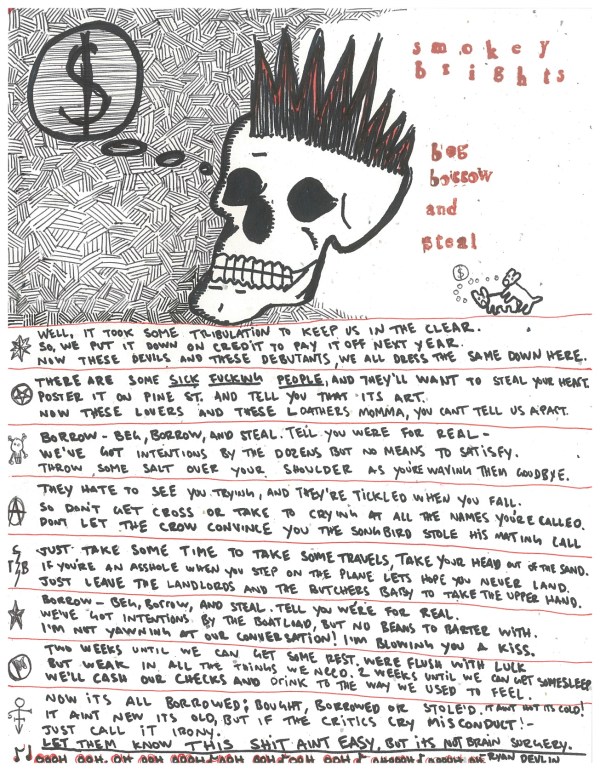 $
smokey
brights
beg
borrow
and
steal
$
WELL, IT TOOK SOME TRIBULATION TO KEEP US IN THE CLEAR.
SO, WE PUT IT DOWN ON CREDIT TO PAY IT OFF NEXT YEAR.
NOW THESE DEVILS AND THESE DEBUTANTS, WE ALL DRESS THE SAME DOWN HERE.
THERE ARE SOME SICK FUCKING PEOPLE, AND THEY'LL WANT TO STEAL YOUR HEART.
POSTER IT ON PINE ST. AND TELL YOU THAT ITS ART.
NOW THESE LOVERS AND THESE LOATHERS MOMMA, YOU CANT TELL US APART.
BORROW - BEG, BORROW, AND STEAL. TELL YOU WERE FOR REAL -
WE'VE GOT INTENTIONS BY THE DOZENS BUT NO MEANS TO SATISFY.
THROW SOME SALT OVER YOUR SHOULDER AS YOU'RE WAVING THEM GOODBYE.
THEY HATE TO SEE YOU TRYING, AND THEY'RE TICKLED WHEN YOU FALL.
SO DON'T GET CROSS OR TAKE TO CRYING AT ALL THE NAMES YOU'RE CALLED.
DONT LET THE CROW CONVINCE YOU THE SONGBIRD STOLE HIS MATING CALL
STB JUST TAKE SOME TIME TO TAKE SOME TRAVELS, TAKE YOUR HEAD OUT OF THE SAND.
IF YOU'RE AN ASSHOLE WHEN YOU STEP ON THE PLANE LETS HOPE YOU NEVER LAND.
JUST LEAVE THE LANDLORDS AND THE BUTCHERS BABY TO TAKE THE UPPER HAND.
BORROW - BEG, BORROW, AND STEAL. TELL YOU WE'RE FOR REAL.
WE'VE GOT INTENTIONS BY THE BOATLOAD, BUT NO BEANS TO BARTER WITH.
I'M NOT YAWNING AT OUR CONVERSATION! I'M BLOWING YOU A KISS.
TWO WEEKS UNTIL WE CAN GET SOME REST. WERE FLUSH WITH LUCK
BUT WEAK IN ALL THE THINGS WE NEED. 2 WEEKS UNTIL WE CAN GET SOME SLEEP
WE'LL CASH OUR CHECKS AND DRINK TO THE WAY WE USED TO FEEL.
NOW ITS ALL BORROWED; BOUGHT, BORROWED OR STOLE'D. IT AINT HOT ITS COLD!
IT AINT NEW ITS OLD, BUT IF THE CRITICS CRY MISCONDUCT! -
JUST CALL IT IRONY.
LET THEM KNOW THIS SHIT AINT EASY, BUT ITS NOT BRAIN SURGERY.
OOOH OOH. OH OOH
RYAN DEVLIN